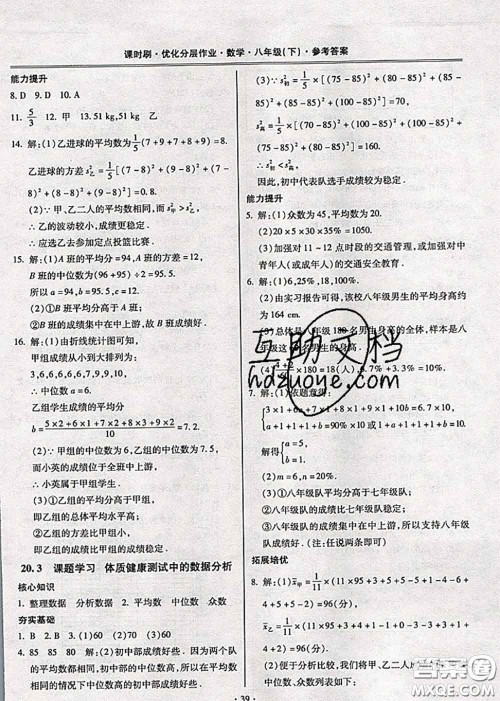 课时刷·优化分层作业·数学·八年级(下)·参考答案
能力提升
8. D 9. D 10. A
11. 5/3 12. 甲 13. 51 kg,51 kg 乙
14. 解:(1)乙进球的平均数为(7+9+7+8+9)÷5=8.
乙进球的方差 s²乙=1/5×[(7-8)²+(9-8)²+(7-8)²+(8-8)²+(9-8)²]=0.8.
(2)∵甲、乙二人的平均数相同,而 s²甲>s²乙,
∴乙的波动较小,成绩更稳定.
∴应选乙去参加定点投篮比赛.
15. 解:(1)A班的平均分=94,A班的方差=12.
B班的中位数为(96+95)÷2=95.5.
所以 a=94,b=95.5,c=12.
(2)①B班平均分高于A班;
②B班的成绩集中在中上游,故B班成绩好.
16. 解:(1)由折线统计图可知,
甲组成绩从小到大排列为:
3,6,6,6,6,6,7,9,9,10,
∴中位数 a=6.
乙组学生成绩的平均分
b=(5×2+6×1+7×2+8×3+9×2)/10=7.2.
(2)∵甲组的中位数为6,乙组的中位数为7.5,
而小英的成绩位于全班中上游,
∴小英属于甲组学生.
(3)①乙组的平均分高于甲组,
即乙组的总体平均水平高;
②乙组的方差比甲组小,
即乙组的成绩比甲组的成绩稳定.
20.3 课题学习 体质健康测试中的数据分析
核心知识
1. 整理数据 分析数据 2. 平均数 中位数 众数
夯实基础
1. B 2. B 3. (1)60 (2)70 (3)60
4. 85 85 80 解:(2)初中部成绩好些. 因为两个队
的平均数都相同,初中部的中位数高,所以在平均数
相同的情况下中位数高的初中部成绩好些.
(3)∵s²初=1/5×[(75-85)²+(80-85)²+(85-85)²+(85-85)²+(100-85)²]=70,
s²高=1/5×[(70-85)²+(100-85)²+(100-85)²+(75-85)²+(80-85)²]=160,
∴s²初<s²高,
因此,初中代表队选手成绩较为稳定.
能力提升
5. 解:(1)众数为45,平均数为20.
(2)20×5×30×35%=1050.
(3)加强对11-12点时段的交通管理,或加强对中
青年人(或成年人)的交通安全教育.
6. 解:(1)6,25%,18,100%.
(2)由实习报告可得,该校八年级男生的平均身高约
为164 cm.
(3)总体是八年级180名男生身高的全体,样本是八
年级这名男生的身高.
×180=18(人) 6.7%+3.3%=10%.
7. 解:(1)依题意得:
{3×1+6a+7×1+8×1+9×1+10b=6.7×10,
1+a+1+1+1+b=10.
解得{a=5,
b=1.
(3)①八年级队平均分高于七年级队;
②八年级队的成绩比七年级队稳定;
③八年级队的成绩集中在中上游,所以支持八年级
队成绩好.
拓展培优
(2)便于分析计算,将甲、乙二人的成绩
互助文档
hdzuoye.com
·39·
答案圈
MXQE.COM